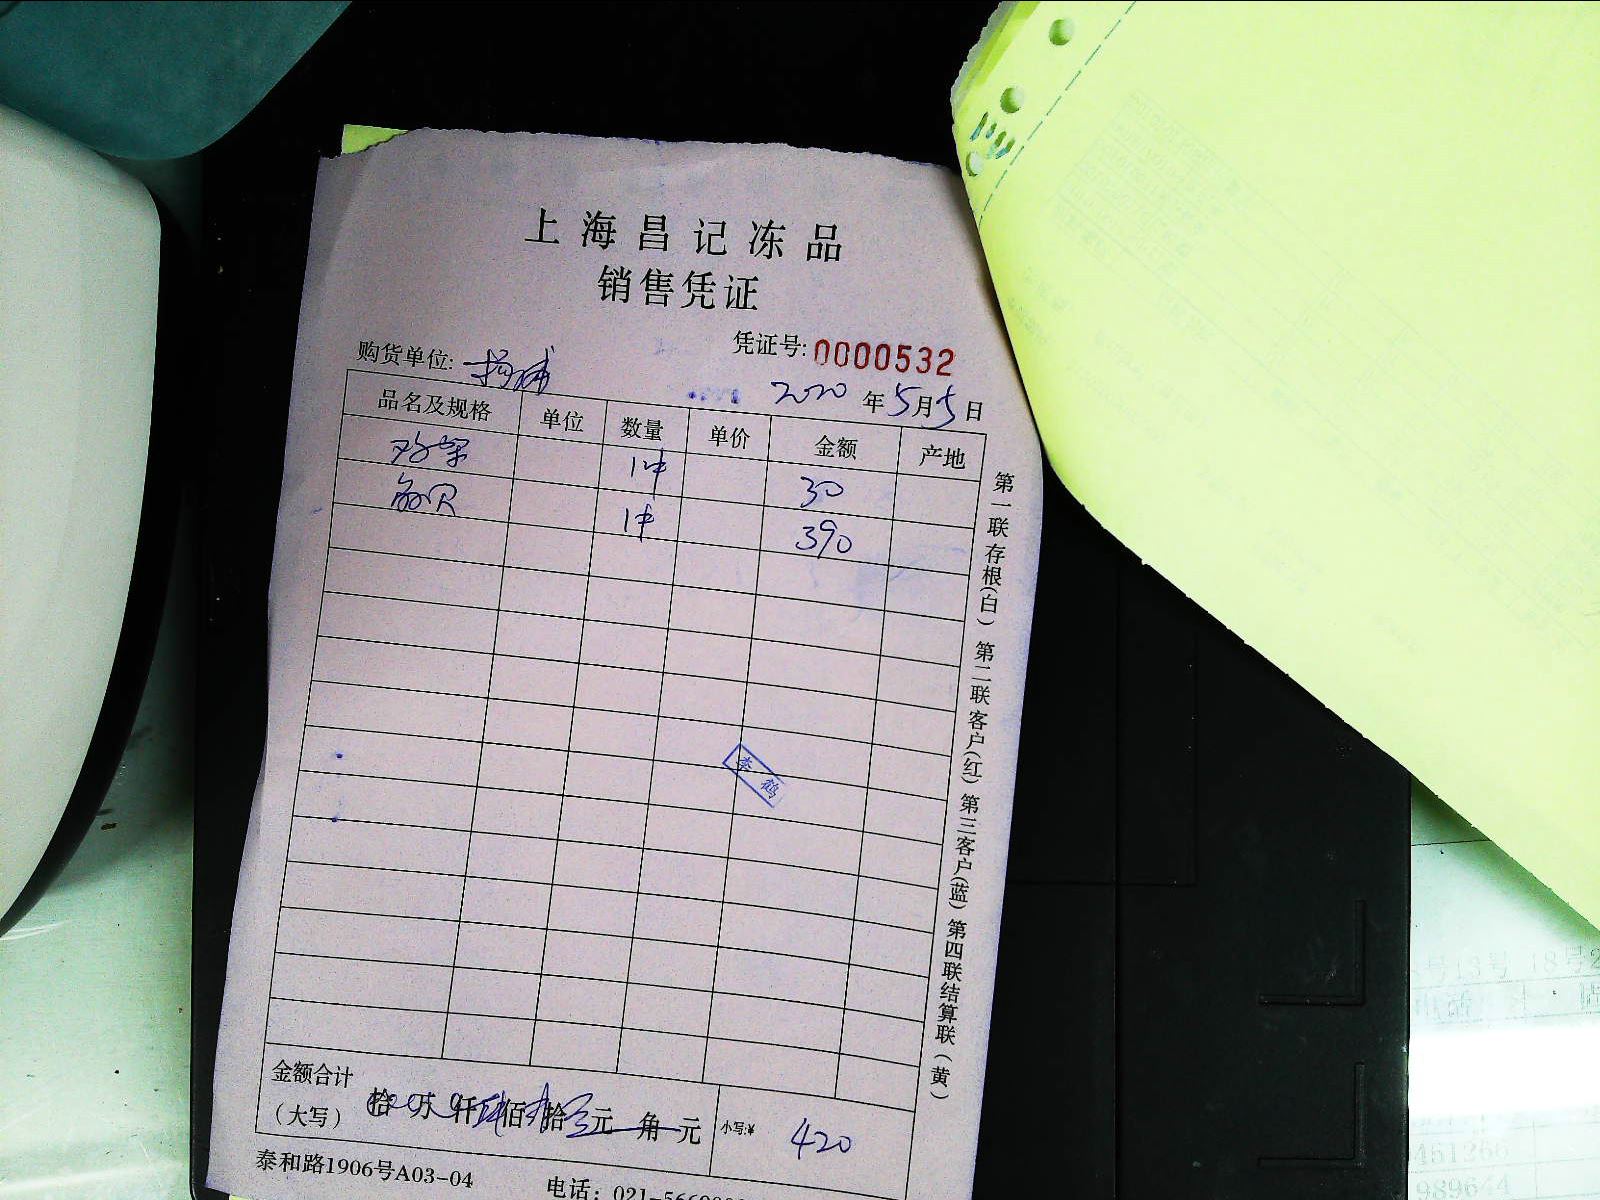 上海昌记冻品
销售凭证
凭证号: 0000532
购货单位: 杨浦
2020 年 5 月 5 日
品名及规格 单位 数量 单价 金额 产地
鸡架 1件 30
1件 390
李鹤
金额合计
(大写) 拾 万 仟 佰 拾 元 角 元 小写:¥ 420
泰和路1906号A03-04
电话: 021-566
第一联存根(白) 第二联客户(红) 第三客户(蓝) 第四联结算联(黄)